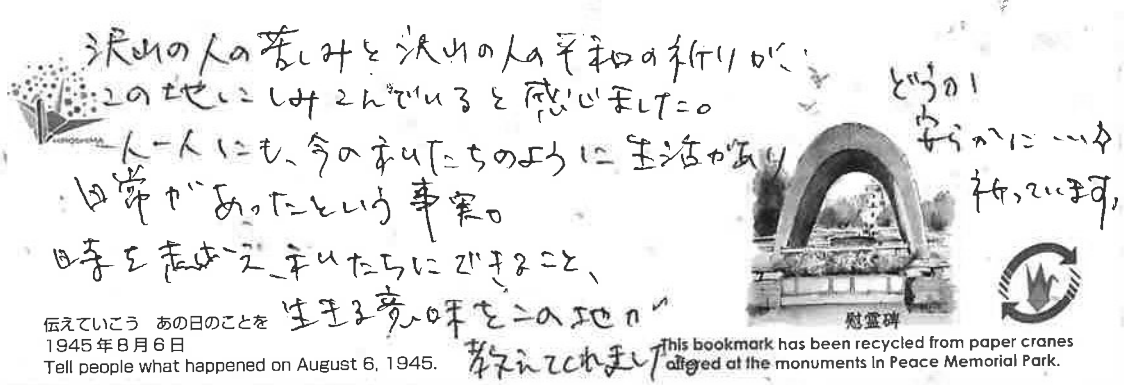 沢山の人の苦しみと沢山の人の平和の祈りが、
この地にしみこんでいると感じました。
一人一人にも、今の私たちのように生活があり
日常があったという事実。
時を越え、私たちにできること、
生きる意味をこの地が
教えてくれました。
どうか
安らかに…と
祈っています。
HIROSHIMA
伝えていこう あの日のことを
1945年8月6日
Tell people what happened on August 6, 1945.
慰霊碑
This bookmark has been recycled from paper cranes
offered at the monuments in Peace Memorial Park.